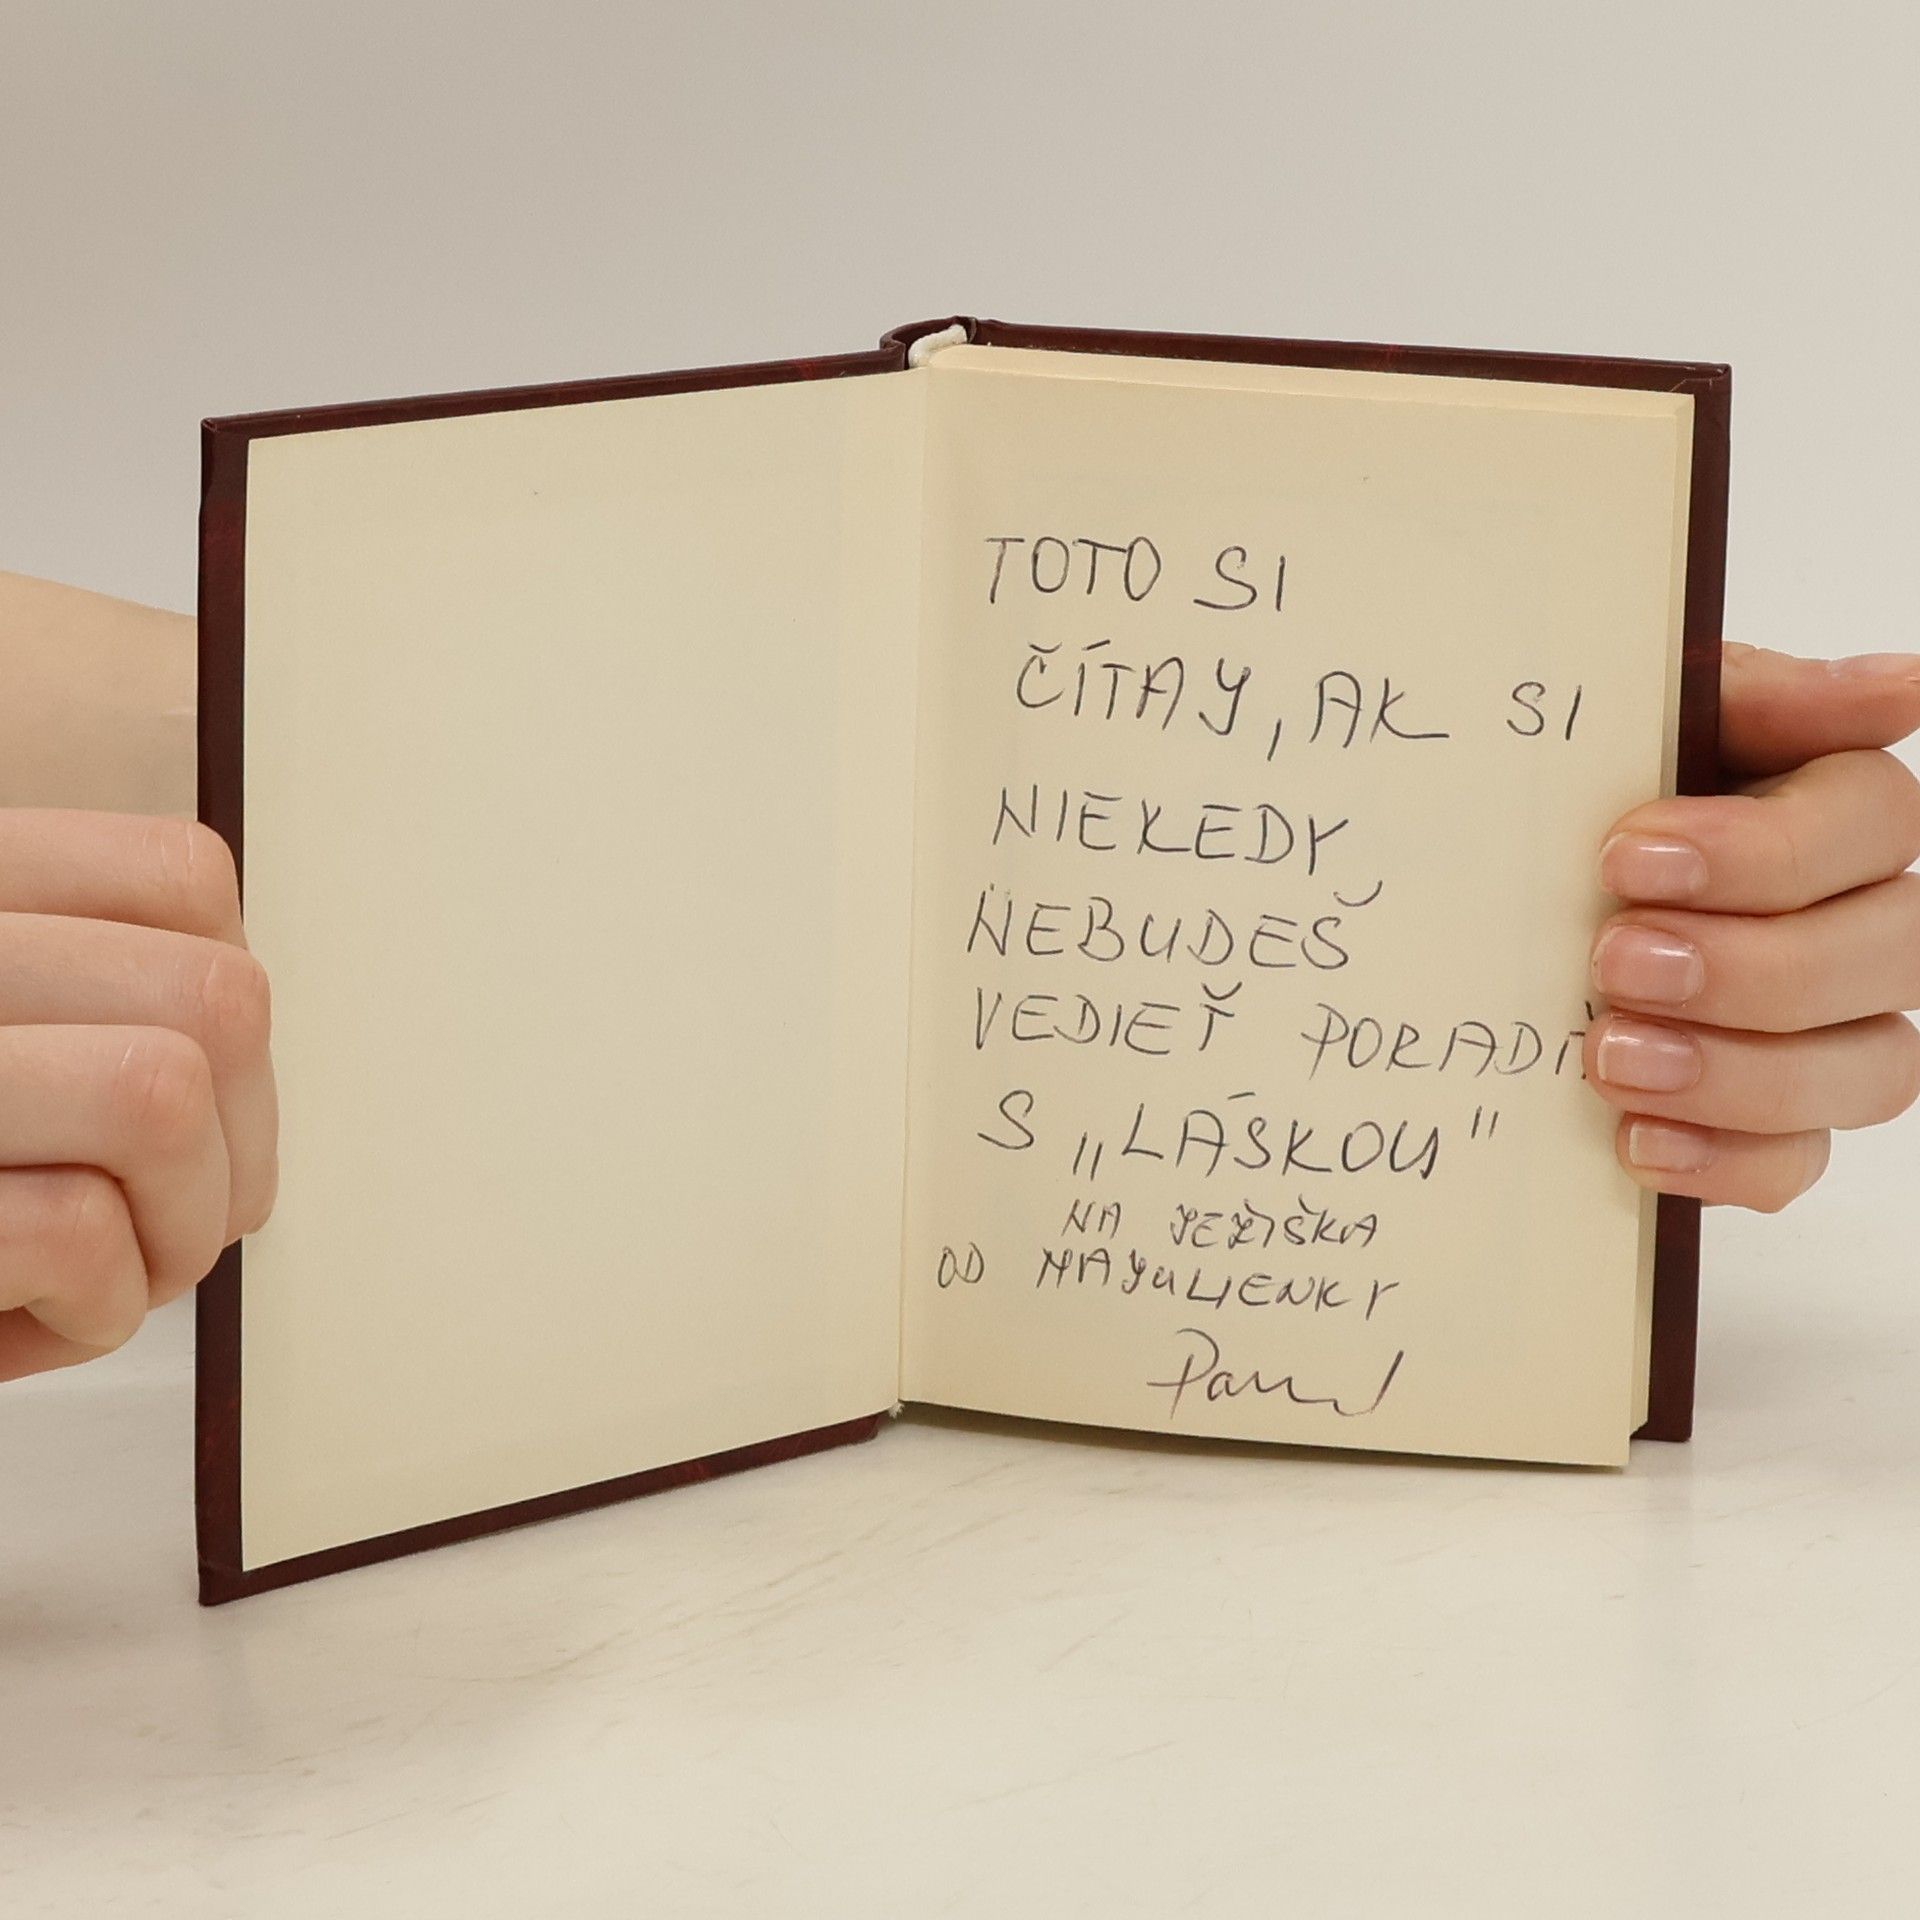 TOTO SI
ČÍTAJ, AK SI
NIEKEDY
NEBUDEŠ
VEDIEŤ
S „LÁSKOU"
NA JEŽIŠKA
OD MAJULIENKY